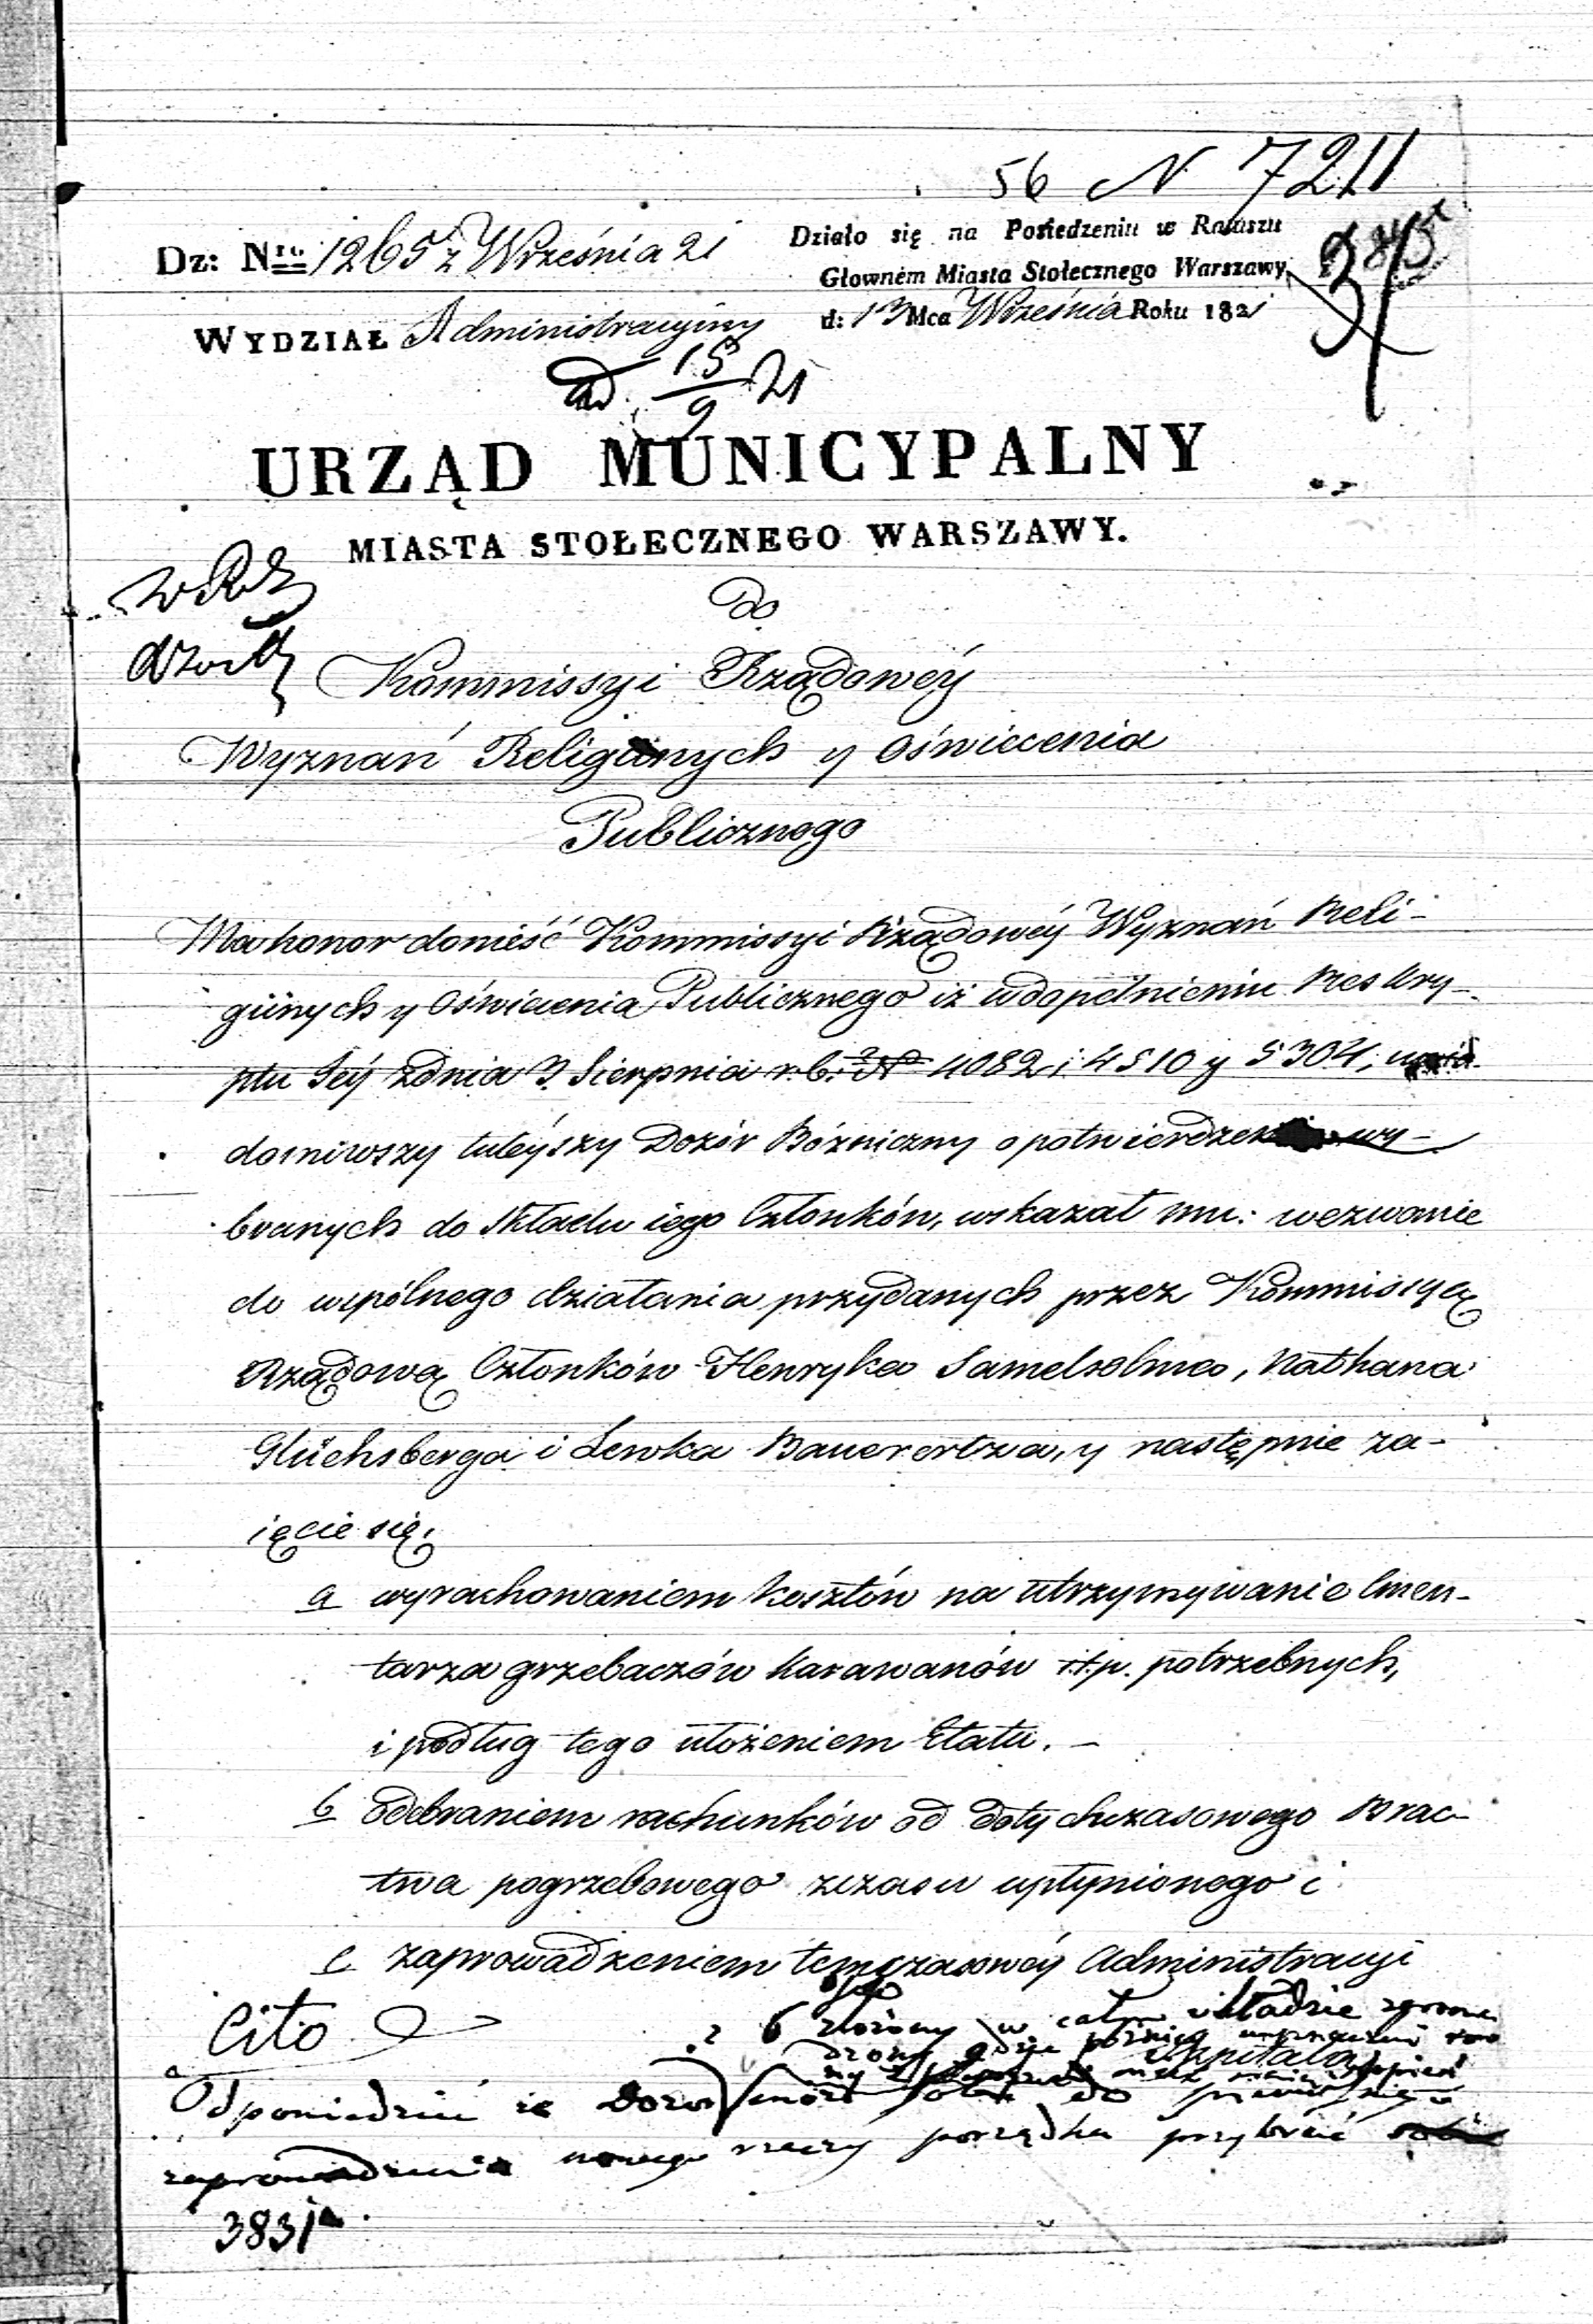 56 N 7211
Dz: Nro 1265 z Września 21
Działo się na Posiedzeniu w Ratuszu
Głowném Miasta Stołecznego Warszawy
d: 13 Mca Września Roku 1821
WYDZIAŁ Administracyiny
15/9 21
URZĄD MUNICYPALNY
MIASTA STOŁECZNEGO WARSZAWY.
do
Kommissyi Rządowéy
Wyznań Religiinych y Oświecenia
Publicznego
Ma honor donieść Kommissyi Rządowéy Wyznań Reli-
giinych y Oświecenia Publicznego iż w dopełnieniu Reskry-
ptu Jéy z dnia 3. Sierpnia r. b. No 4082 i 4510 y 5304, uwia-
domiwszy tuteyszy Dozór Bózniczny o potwierdzeniu wy-
branych do składu iego Członków, wskazał mu: wezwanie
do wspólnego działania przydanych przez Kommissyą
Rządową Członków Henryka Samelsohna, Nathana
Glücksberga i Lewka Bauerertza, y następnie za-
ięcie się,
a wyrachowaniem kosztów na utrzymywanie Cmen-
tarza grzebaczów karawanów i t. p. potrzebnych,
i podług tego ułożeniem Etatu. -
b odebraniem rachunków od dotychczasowego Brac-
twa pogrzebowego z czasu upłynionego i
c zaprowadzeniem temczasowéy Administracyi
Cito
złożony w całym składzie
Szpitala
Odpowiedzieć że Dozór do
zaprowadzenia nowego rzeczy porządku przybrać
3831